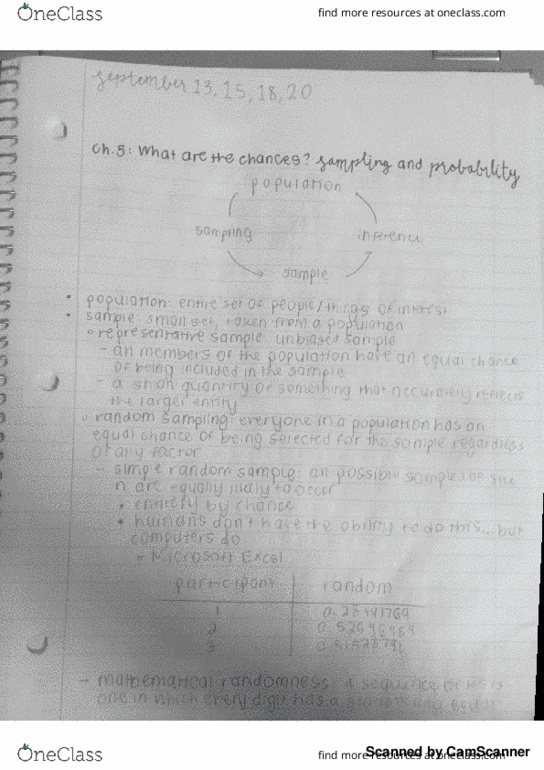 OneClass
find more resources at oneclass.com
September 13, 15, 18, 20
Ch.5: What are the chances? sampling and probability
population
sampling
inference
sample
• population: entire set of people/things of interest
• sample: small set, taken from a population
o representative sample: unbiased sample
- all members of the population have an equal chance
of being included in the sample
- a small quantity of something that accurately reflects
the larger entity
o random sampling: everyone in a population has an
equal chance of being selected for the sample regardless
of any factor
- simple random sample: all possible samples of size
n are equally likely to occur
• entirely by chance
• humans don't have the ability to do this...but
computers do
o Microsoft Excel
participant random
1
2
3
- mathematical randomness: a sequence of is
one in which every digit has a equal
OneClass
find more resources at oneclass.com
Scanned by CamScanner